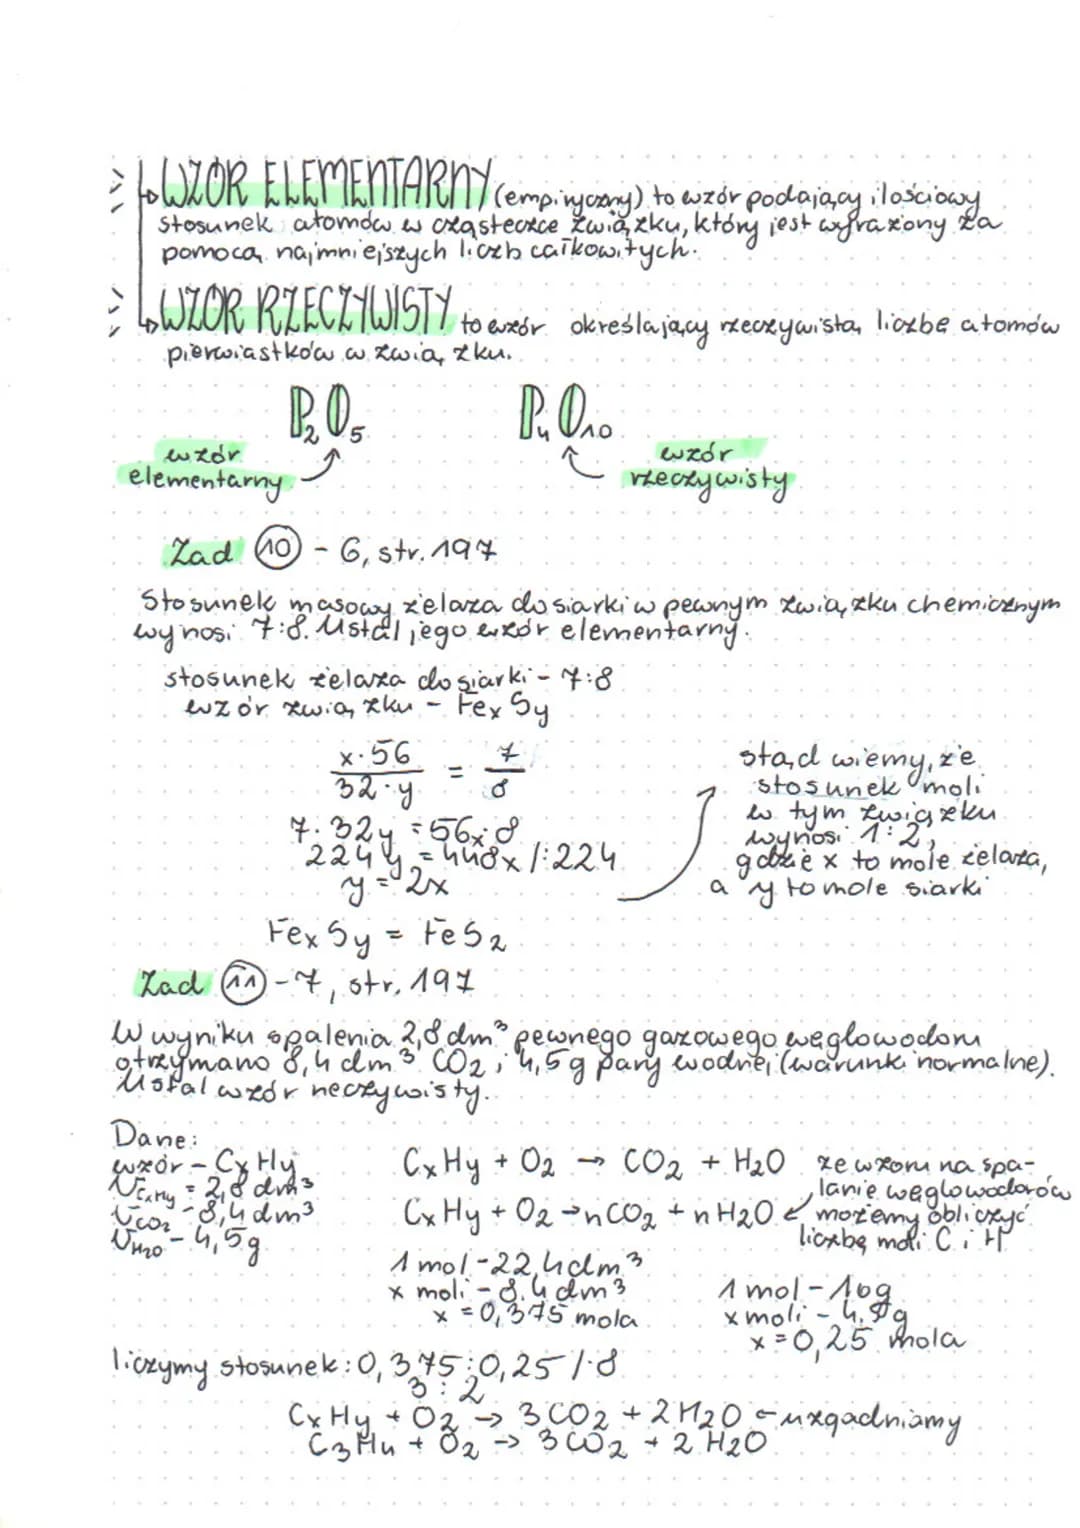 WZÓR ELEMENTARNY (empiryczny) to wzór podający ilościowy
stosunek atomów w cząsteczce związku, który jest wyrażony za
pomocą najmniejszych liczb całkowitych.
WZÓR RZECZYWISTY to wzór określający rzeczywistą liczbę atomów
pierwiastków w związku.
P₂O₅ P₄O₁₀
wzór elementarny
wzór rzeczywisty
Zad 10 - 6, str. 197
Stosunek masowy żelaza do siarki w pewnym związku chemicznym
wynosi 7:8. Ustal jego wzór elementarny.
stosunek żelaza do siarki - 7:8
wzór związku - FexSy
x·56 / 32·y = 7 / 8
7·32y = 56x·8
224y = 448x /:224
y = 2x
stąd wiemy, że
stosunek moli
w tym związku
wynosi 1:2,
gdzie x to mole żelaza,
a y to mole siarki
FexSy = FeS₂
Zad 11 - 7, str. 197
W wyniku spalenia 2,8 dm³ pewnego gazowego węglowodoru
otrzymano 8,4 dm³ CO₂ i 4,5g pary wodnej (warunki normalne).
Ustal wzór rzeczywisty.
Dane:
wzór - CxHy
VCxHy = 2,8 dm³
VCO₂ - 8,4 dm³
VH₂O - 4,5g
CxHy + O₂ → CO₂ + H₂O
CxHy + O₂ → nCO₂ + nH₂O
ze wzoru na spa-
lanie węglowodorów
możemy obliczyć
liczbę moli C i H
1 mol - 22,4 dm³
x moli - 8,4 dm³
x = 0,375 mola
1 mol - g
x moli - 4,5g
x = 0,25 mola
liczymy stosunek: 0,375 : 0,25 /·8
3 : 2
CxHy + O₂ → 3CO₂ + 2H₂O ← uzgadniamy
C₃H₄ + O₂ → 3CO₂ + 2H₂O